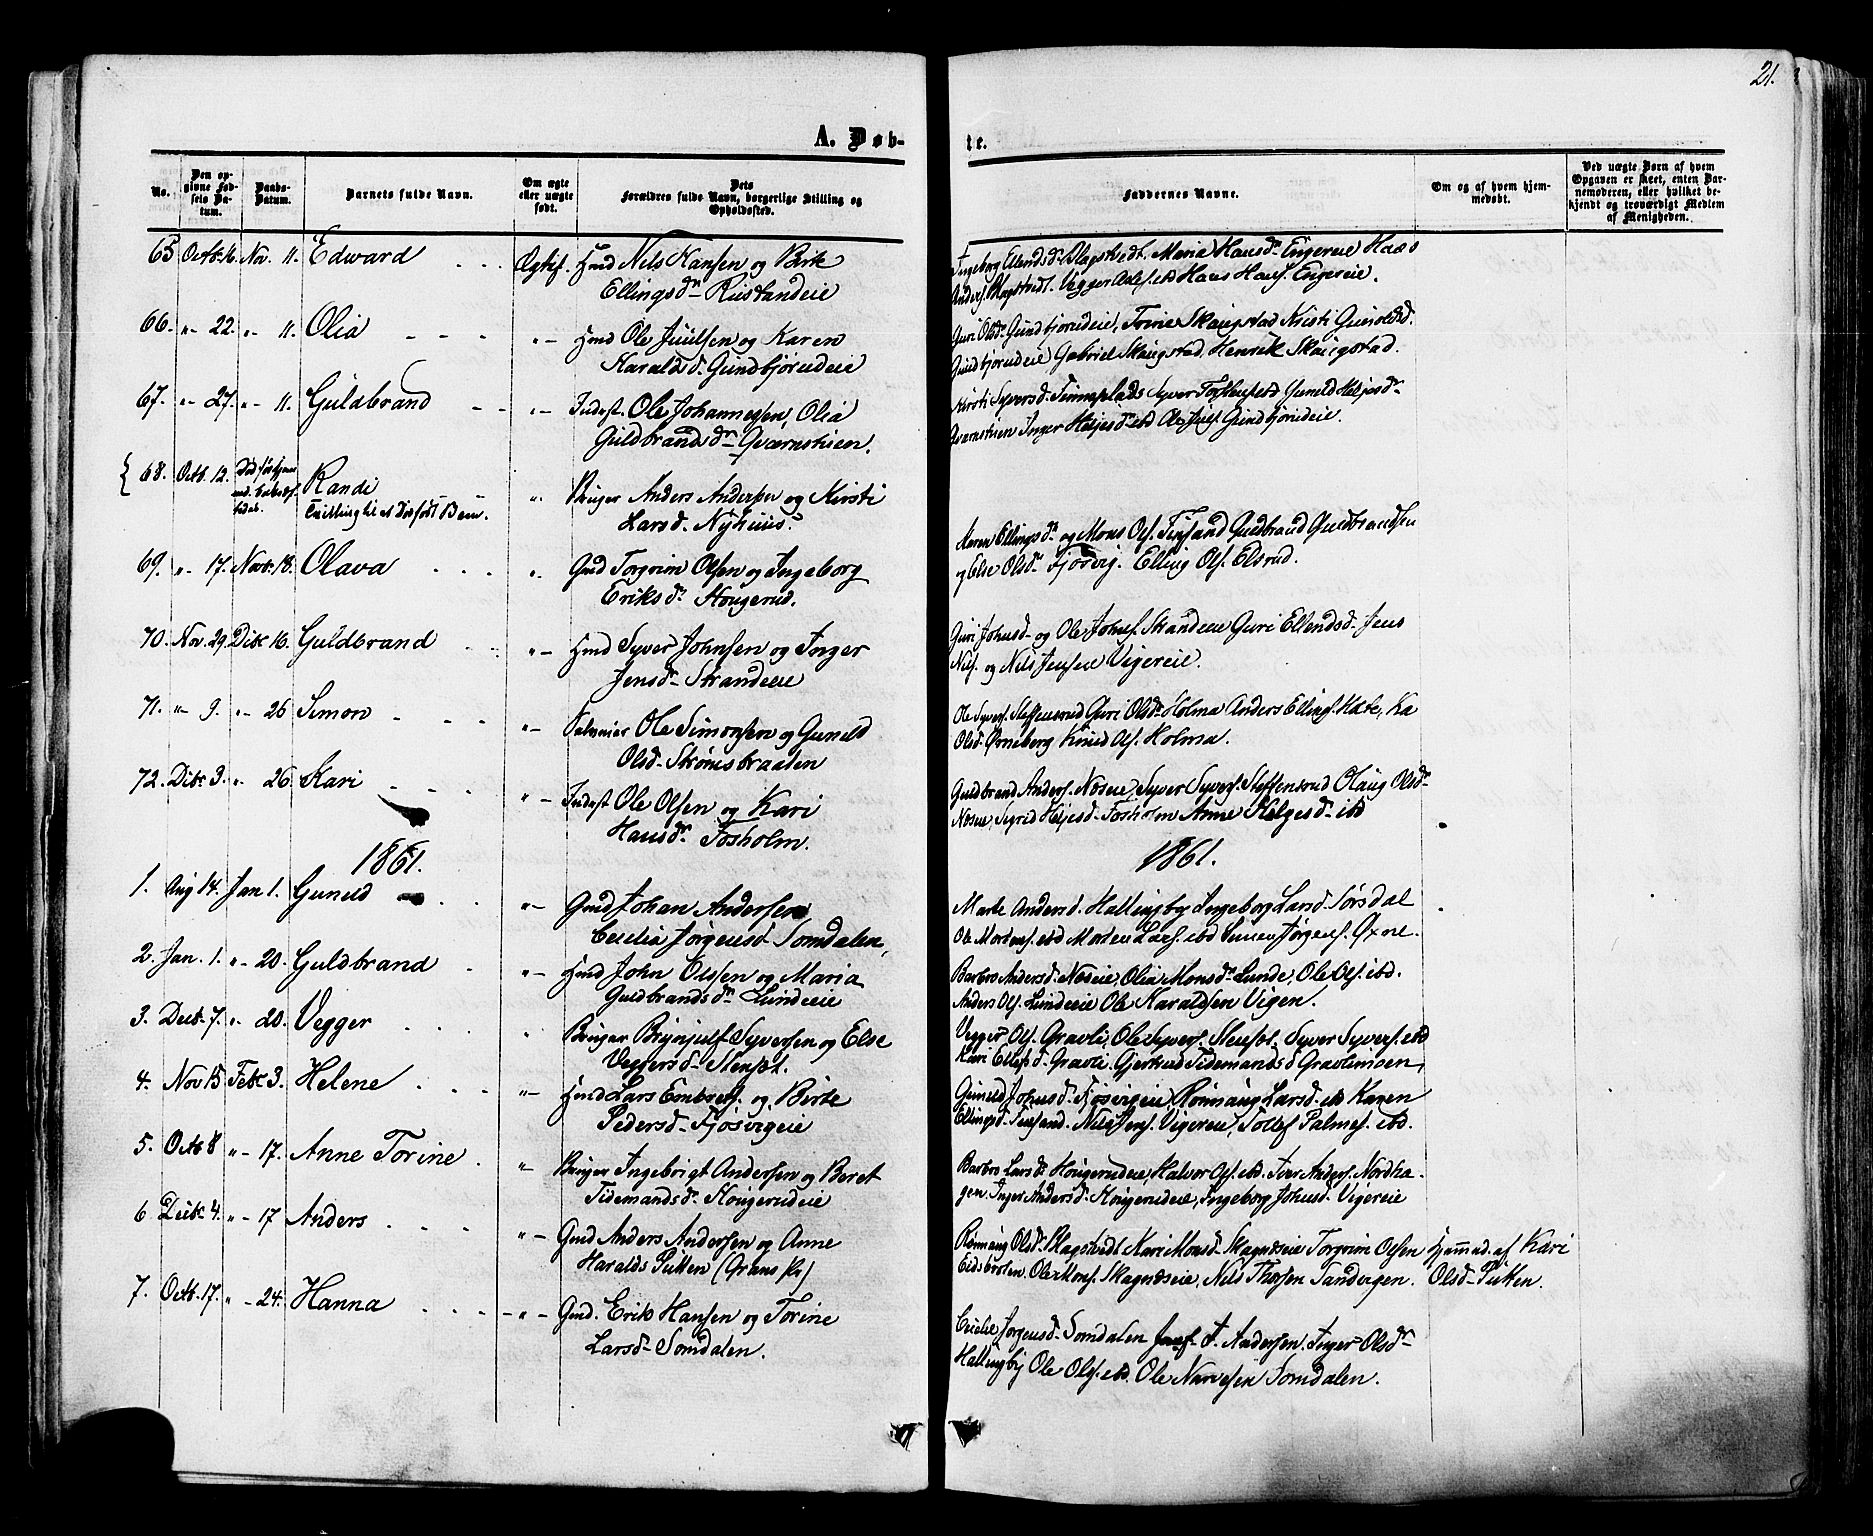 21.
A. Døb-
te.
No.
Den op-
givne Fød-
sels Da-
tum.
Daabs-
Datum.
Barnets fulde Navn.
Om ægte
eller uægte
født.
Dets
Forældres fulde Navn, borgerlige Stilling og
Opholdssted.
Faddernes Navne.
Om og af hvem hjem-
medøbt.
Ved uægte Børn af hvem
Opgaven er skeet, enten Bar-
nemoderen, eller hvilket be-
kjendt og troværdigt Medlem
af Menigheden.
65 Octb. 16. Nov. 11. Edward Ægtef. Hmd Nels Hansen og Birte
Ellingsdr Rustandeie
Ingeborg Erlendsdr Blagstvedt. Maria Hansdr Engereie Haas
Anders Blagstvedt. Vegger Olsf. ibd Hans Hansf. Engereie.
66. "- 22. "- 11. Olia "- Hmd Ole Juulsen og Karen
Haraldsd. Gundbjørudeie
Guri Olsdr Gundbjørudeie, Torine Skaugstad Kristi Gunoldsd.
Gundbjørudeie Gabriel Skaugstad, Henrik Skaugstad.
67. "- 27. "- 11. Guldbrand "- Inderst. Ole Johannessen, Olia
Guldbrandsdr Qværnstuen.
Kirsti Syversd. Finneplads Syver
Qværnstuen Inger Helgesdr ibd Ole Juulsf. Gundbjørudeie.
68. Octb. 12. Randi " Bruger Anders Andersen og Kirsti
Tvilling til et Dødfødt Barn.
Larsd. Nyhuus.
69. " 17. Novb. 18. Olava " Gmd Torgrim Olsen og Ingeborg
Eriksdr Hougerud.
Karen Ellingsdr og Mons Olsf. Finsand Gudbrand Gudbrandsen
og Else Olsdr Fjøsvig. Elling Olsf. Elsrud.
70. Nov. 29. Dcbr 16. Guldbrand "- Hmd Syver Johnsen og Inger
Jensd. Strandeie
Guri Johnsd. og Ole Johnsf. Strandeie Guri Ellendsd. Jens
Nilsf. og Nels Jensen Vigereie.
71. "- 9. "- 26 Simon "- Ole Simonsen og Guneld
Olsd. Strømsbraaten
Ole Syversf. Steffensrud Guri Olsdr Holma Anders Ellingsf. Ka
Olsd. Ørneberg Knud Olsf. Holma.
72. Dcbr 3. "- 26 Kari "- Inderst Ole Olsen og Kari
Hansdr Fosholm.
Guldbrand Andersf. Næseie, Syver Syversf. Steffensrud Olaug Olsdr
Næseie, Sigrid Helgesd. Fosholm Anne Helgesd. ibd
1861.
1861.
1. Aug 14. Jan 1. Guneld "- Gmd Johan Andersen
Cecilia Jørgensd. Somdalen,
Marte Andersd. Hallingby Ingeborg Larsd. Sørsdal
Ole Mortensf. ibd Morten Larsf. ibd Jørgensf. Oxne.
2. Jan. 1. "- 20. Guldbrand "- Hmd John Olsen og Maria
Guldbrandsdr Lundeeie
Barbro Andersd. Næseie, Olia Monsdr Lunde, Ole Olsf. ibd.
Anders Olsf. Lundeeie Ole Haraldsen Vigen.
3. Decb. 7. "- 20. Vegger " Bruger Brynjulf Syversen og Else
Veggersd. Stensæt.
Vegger Olsf. Gravli, Ole Syversf. Stensæt. Syver Syversf. ibd
Kari Ellefsd. Gravli. Gjertrud Tidemandsd Gravlimoen,
4. Nov 15 Febr 3. Helene "- Hmd Lars Embretsf. og Birte
Pedersd. Fjøsvigeie
Guneld Johnsd. Fjøsvigeie, Rønnaug Larsd. ibd Karen
Ellingsd. Finsand. Nils Jensf. Vigereie, Tollef Palmesf. ibd.
5. Octb 8 "- 17. Anne Torine "- Bruger Ingebrigt Andersen og Beret
Tidemandsdr Hougerudeie
Barbro Larsdr Hougerudeie, Halvor Olsf. ibd. Iver Andersf. Nordha-
gen, Inger Andersd. Hougerudeie, Ingeborg Johnsd. Vigereie
6 Dcbr. 4. "- 17 Anders "- Gmd Anders Andersen og Anne
Haralds Putten (Grans Pr)
Rønnaug Olsdr Blagstvedt Kari Monsd. Skagnæseie Torgrim Olsen
Eidsbroten. Ole Monsf. Skagnæseie, Nils Thorsen Tandergen.
Hjemmed. af Kari
Olsd. Putten.
7. Octb. 17. "- 24. Hanna "- Gmd. Erik Hansen og Torine
Larsd. Somdalen.
Cecilie Jørgensd. Somdalen J. Andersen. Inger Olsdr
Hallingby Ole Olsf. ibd. Ole Narvesen Somdalen.